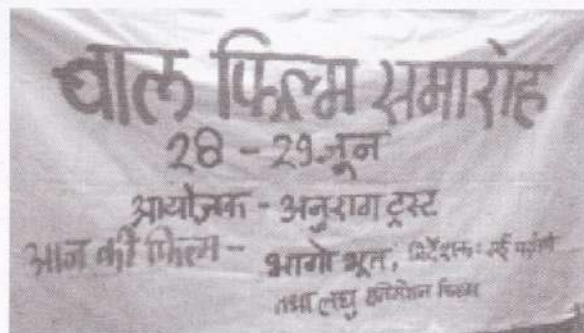 बाल फिल्म समारोह
28 - 29 जून
आयोजक - अनुराग ट्रस्ट
आज की फिल्म - भागो भूत, निर्देशक: सई परांजपे
तथा लघु एनिमेशन फिल्म